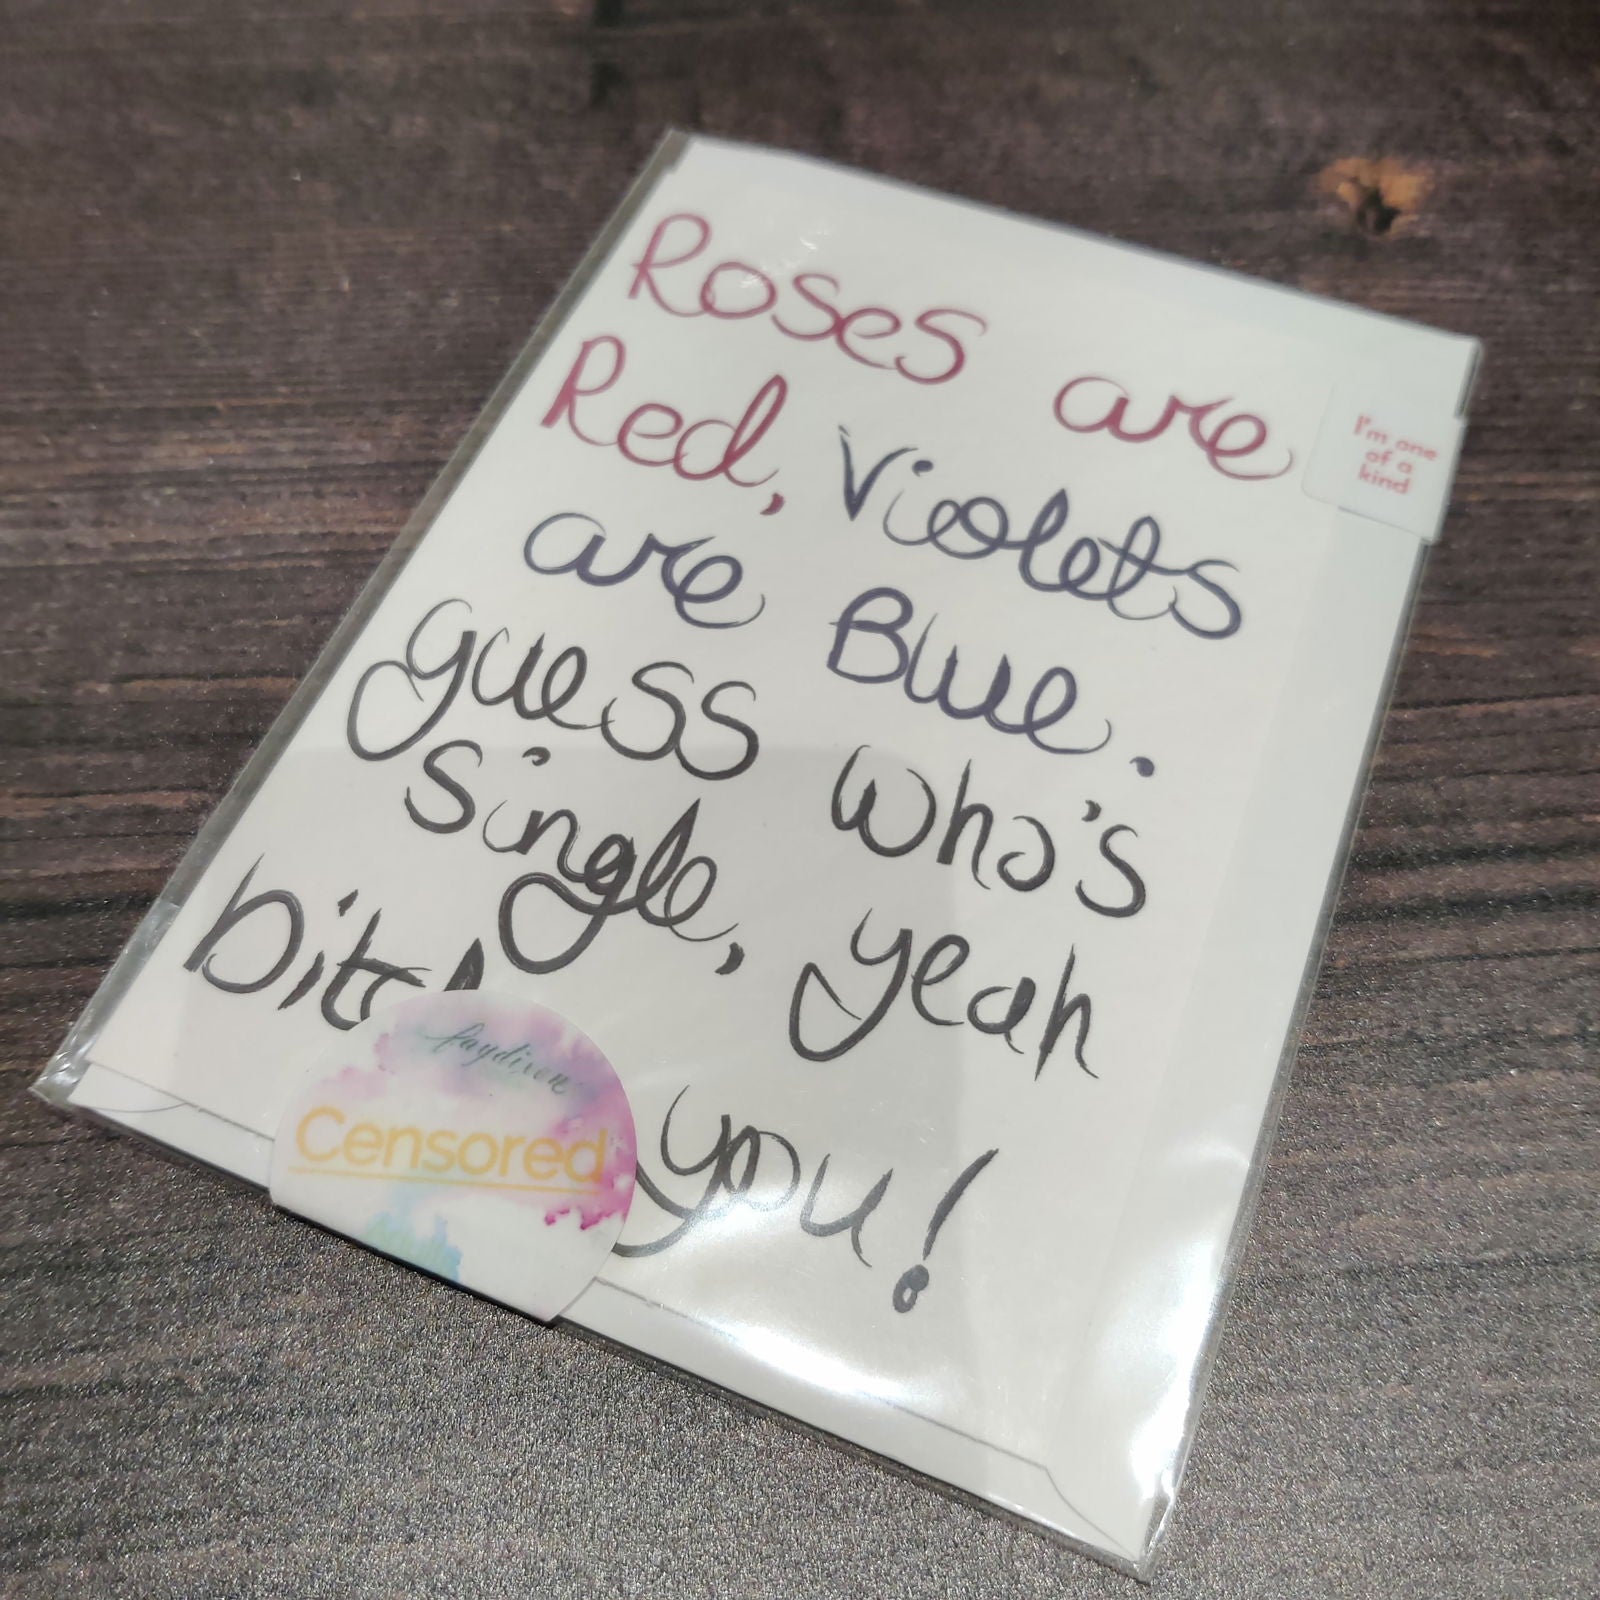 Roses are
Red, Violets
are Blue.
guess who's
single, yeah
bitch you!
I'm one
of a
kind
faydixon
Censored